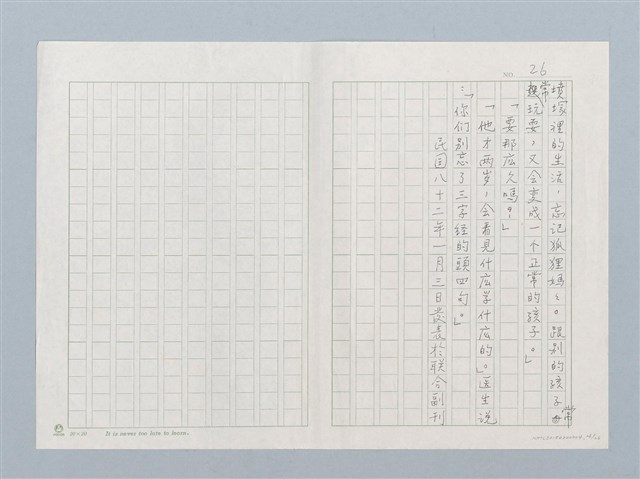 NO. 26
墳塚裡的生活，忘記狐狸媽ヽ。跟別的孩子常
常玩耍，又会变成一个正常的孩子。」
「要那広久嗎？」
「他才両岁，会看見什広学什広的。」医生说
：「你们別忘了三字経的頭四句。」
民国八十二年一月三日发表於联合副刊
It is never too late to learn.